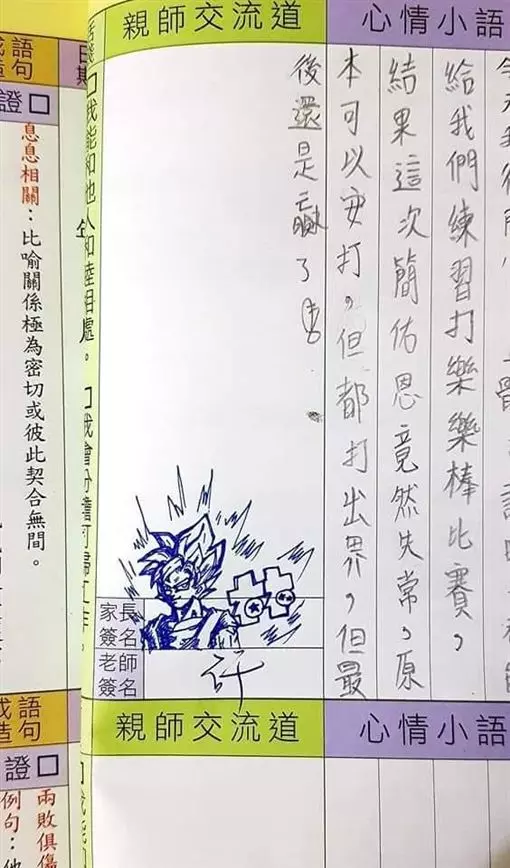 心情小語
給我們練習打樂樂棒比賽，
結果這次簡佑恩竟然失常，原
本可以安打，但都打出界，但最
後還是贏了
親師交流道
家長
簽名
老師
簽名
許
□我能和他人和睦相處。
日期
語句
證□
息息相關：比喻關係極為密切或彼此契合無間。
心情小語
親師交流道
成語
造句
證□
兩敗俱傷
例句：他